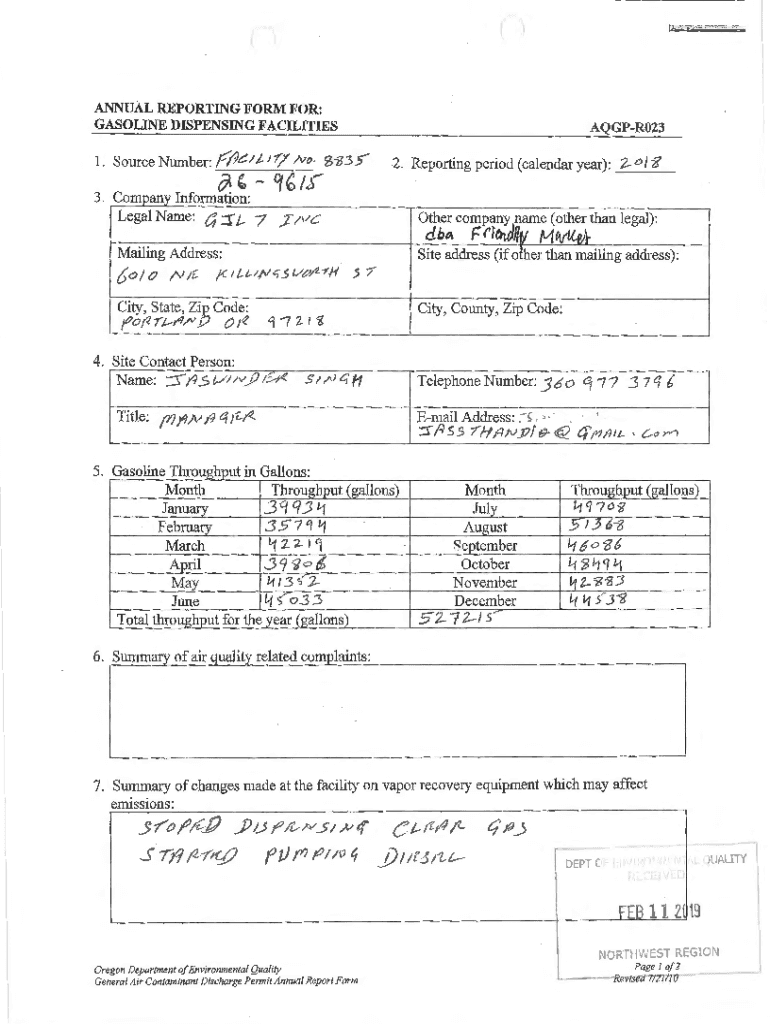 ANNUAL REPORTING FORM FOR:
GASOLINE DISPENSING FACILITIES
AQGP-R023
1. Source Number: FACILITY NO. 8835
26-9615
2. Reporting period (calendar year): 2018
3. Company Information:
Legal Name: GIL 7 INC
Other company name (other than legal):
dba Friendly Market
Mailing Address:
6010 NE KILLINGSWORTH ST
Site address (if other than mailing address):
City, State, Zip Code:
PORTLAND OR 97218
City, County, Zip Code:
4. Site Contact Person:
Name: JASWINDER SINGH
Telephone Number: 360 977 3796
Title: MANAGER
E-mail Address:
JASSTHANDIE@GMAIL.Com
5. Gasoline Throughput in Gallons:
Month Throughput (gallons) Month Throughput (gallons)
January 39934 July 49708
February 35794 August 51368
March 42219 September 46086
April 39806 October 48494
May 41352 November 42883
June 45033 December 44538
Total throughput for the year (gallons) 527215
6. Summary of air quality related complaints:
7. Summary of changes made at the facility on vapor recovery equipment which may affect
emissions:
STOPED DISPENSING CLEAR GAS
STARTED PUMPING DIESEL
DEPT OF ENVIRONMENTAL QUALITY
RECEIVED
FEB 11 2019
NORTHWEST REGION
Oregon Department of Environmental Quality
General Air Contaminant Discharge Permit Annual Report Form
Page 1 of 3
Revised 7/21/10